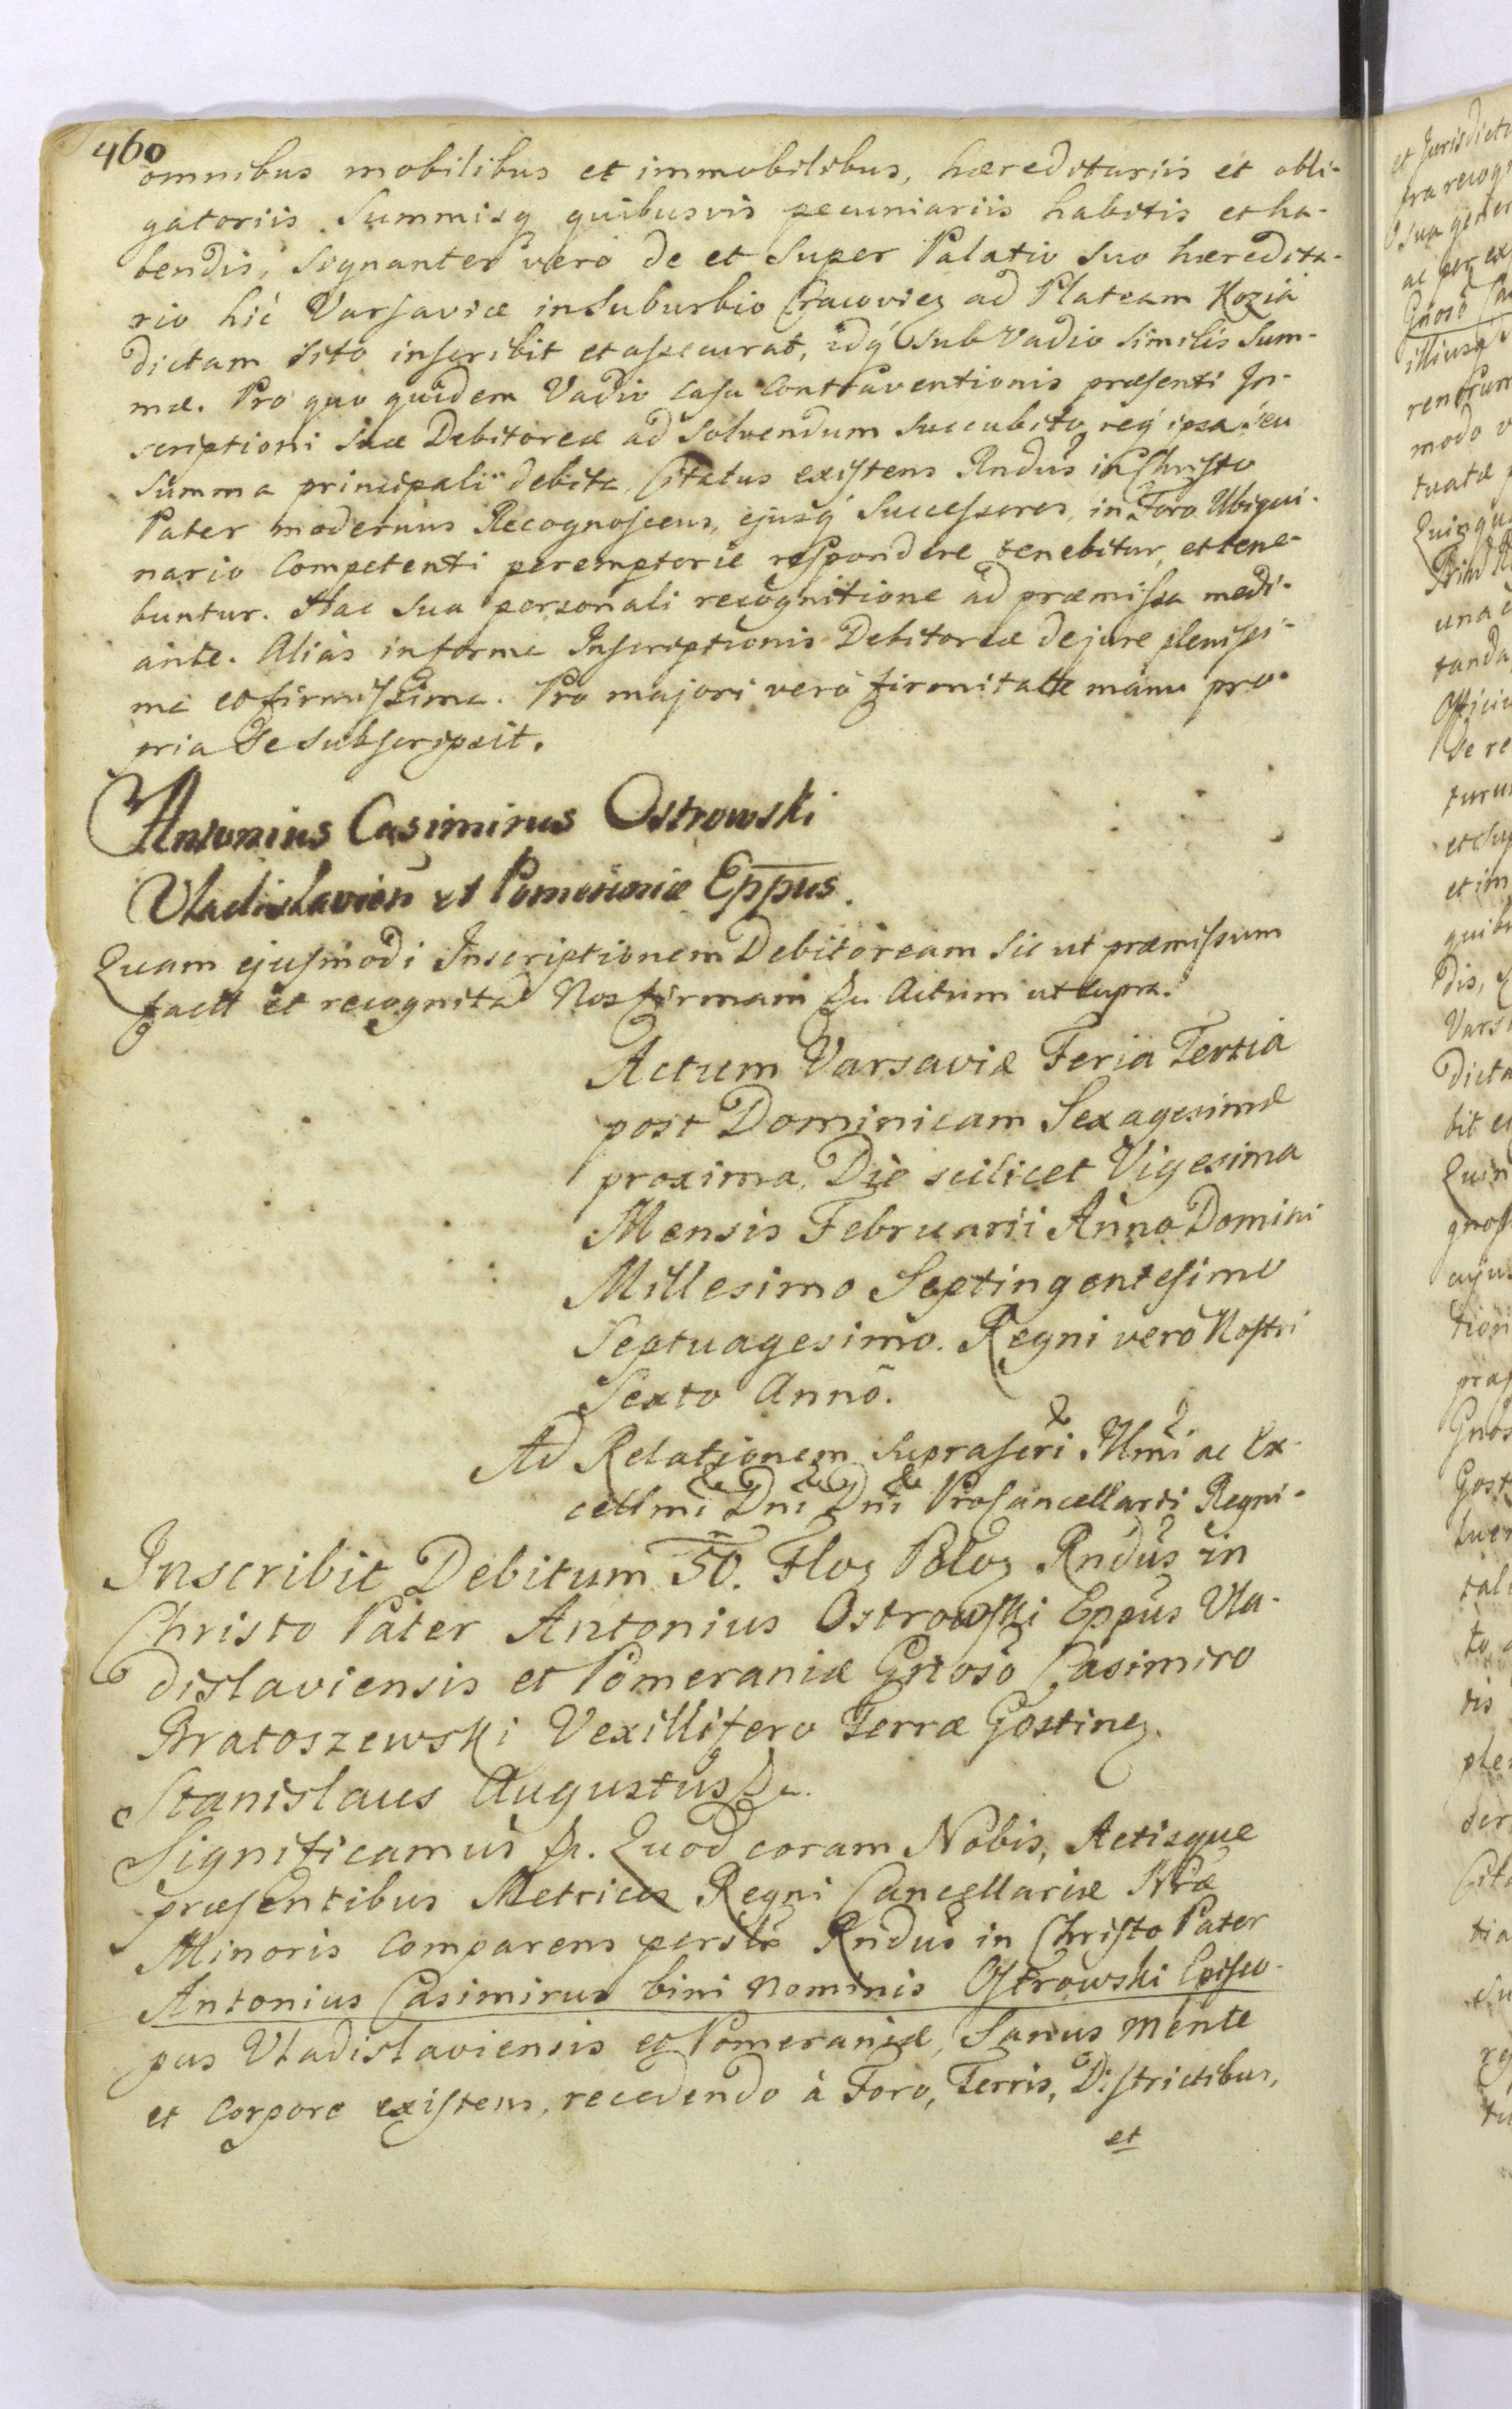 460
omnibus mobilibus et immobilibus, hæreditariis et obli-
gatoriis Summisq quibusvis pecuniariis habitis et ha-
bendis, signanter vero de et super Palatio suo hæredita-
rio hic Varsaviæ in Suburbio Cracovien ad Plateam Kozia
dictam sito inscribit et assecurat, idq sub vadio similis Sum-
mæ. Pro quo quidem Vadio casu contraventionis præsenti In-
scriptioni suæ Debitoreæ ad solvendum succubito, req ipsa seu
Summa principali debita, Citatus existens Rndus in Christo
Pater modernus Recognoscens, ejusq Successores, in Foro Ubiqui-
nario Competenti peremptorie respondere tenebitur, et tene-
buntur. Hac sua personali recognitione ad præmissa medi-
ante. Alias in forma Inscriptionis Debitoreæ de jure plenissi-
ma et firmissima. Pro majori vero firmitate manu pro-
pria se subscripsit.
Antonius Casimirus Ostrowski
Vladislavien et Pomeraniæ Eppus.
Quam ejusmodi Inscriptionem Debitoream sic ut præmissum
factt et recognita Nos firmam &c Actum ut supra.
Actum Varsaviæ Feria Tertia
post Dominicam Sexagesimæ
proxima, Die scilicet Vigesima
Mensis Februarii Anno Domini
Millesimo Septingentesimo
Septuagesimo. Regni vero Nostri
Sexto Anno.
Ad Relationem suprascri Illmi ac Ex-
cellmi Dni Dni Procancellarii Regni-
Inscribit Debitum 50. Flor Polor Rndus in
Christo Pater Antonius Ostrowski Eppus Vla-
dislaviensis et Pomeraniæ Gnoso Casimiro
Bratoszewski Vexillifero Terræ Gostinen.
Stanislaus Augustus &c.
Significamus &c. Quod coram Nobis, Actisque
præsentibus Metrices Regni Cancellariæ Nræ
Minoris comparens persolr Rndus in Christo Pater
Antonius Casimirus bini nominis Ostrowski Episco-
pus Vladislaviensis et Pomeraniæ, Sanus mente
et corpore existens, recedendo à Foro, Terris, Districtibus,
et